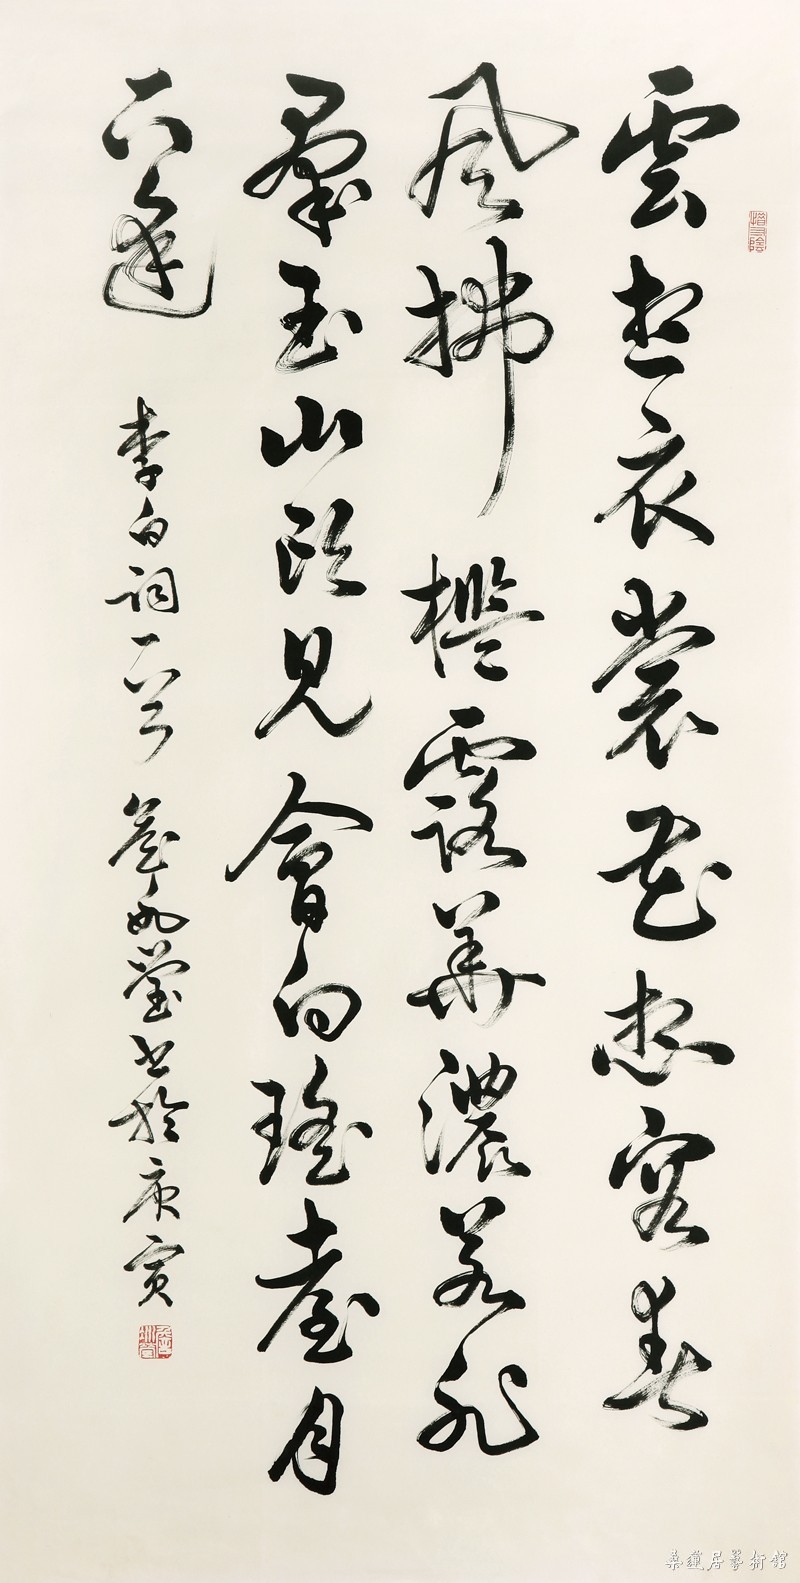 惜寸陰
雲想衣裳花想容春
風拂檻露華濃若非
羣玉山頭見會向瑤臺月
下逢
李白詞一首 書於庚寅
桑蓮居藝術館